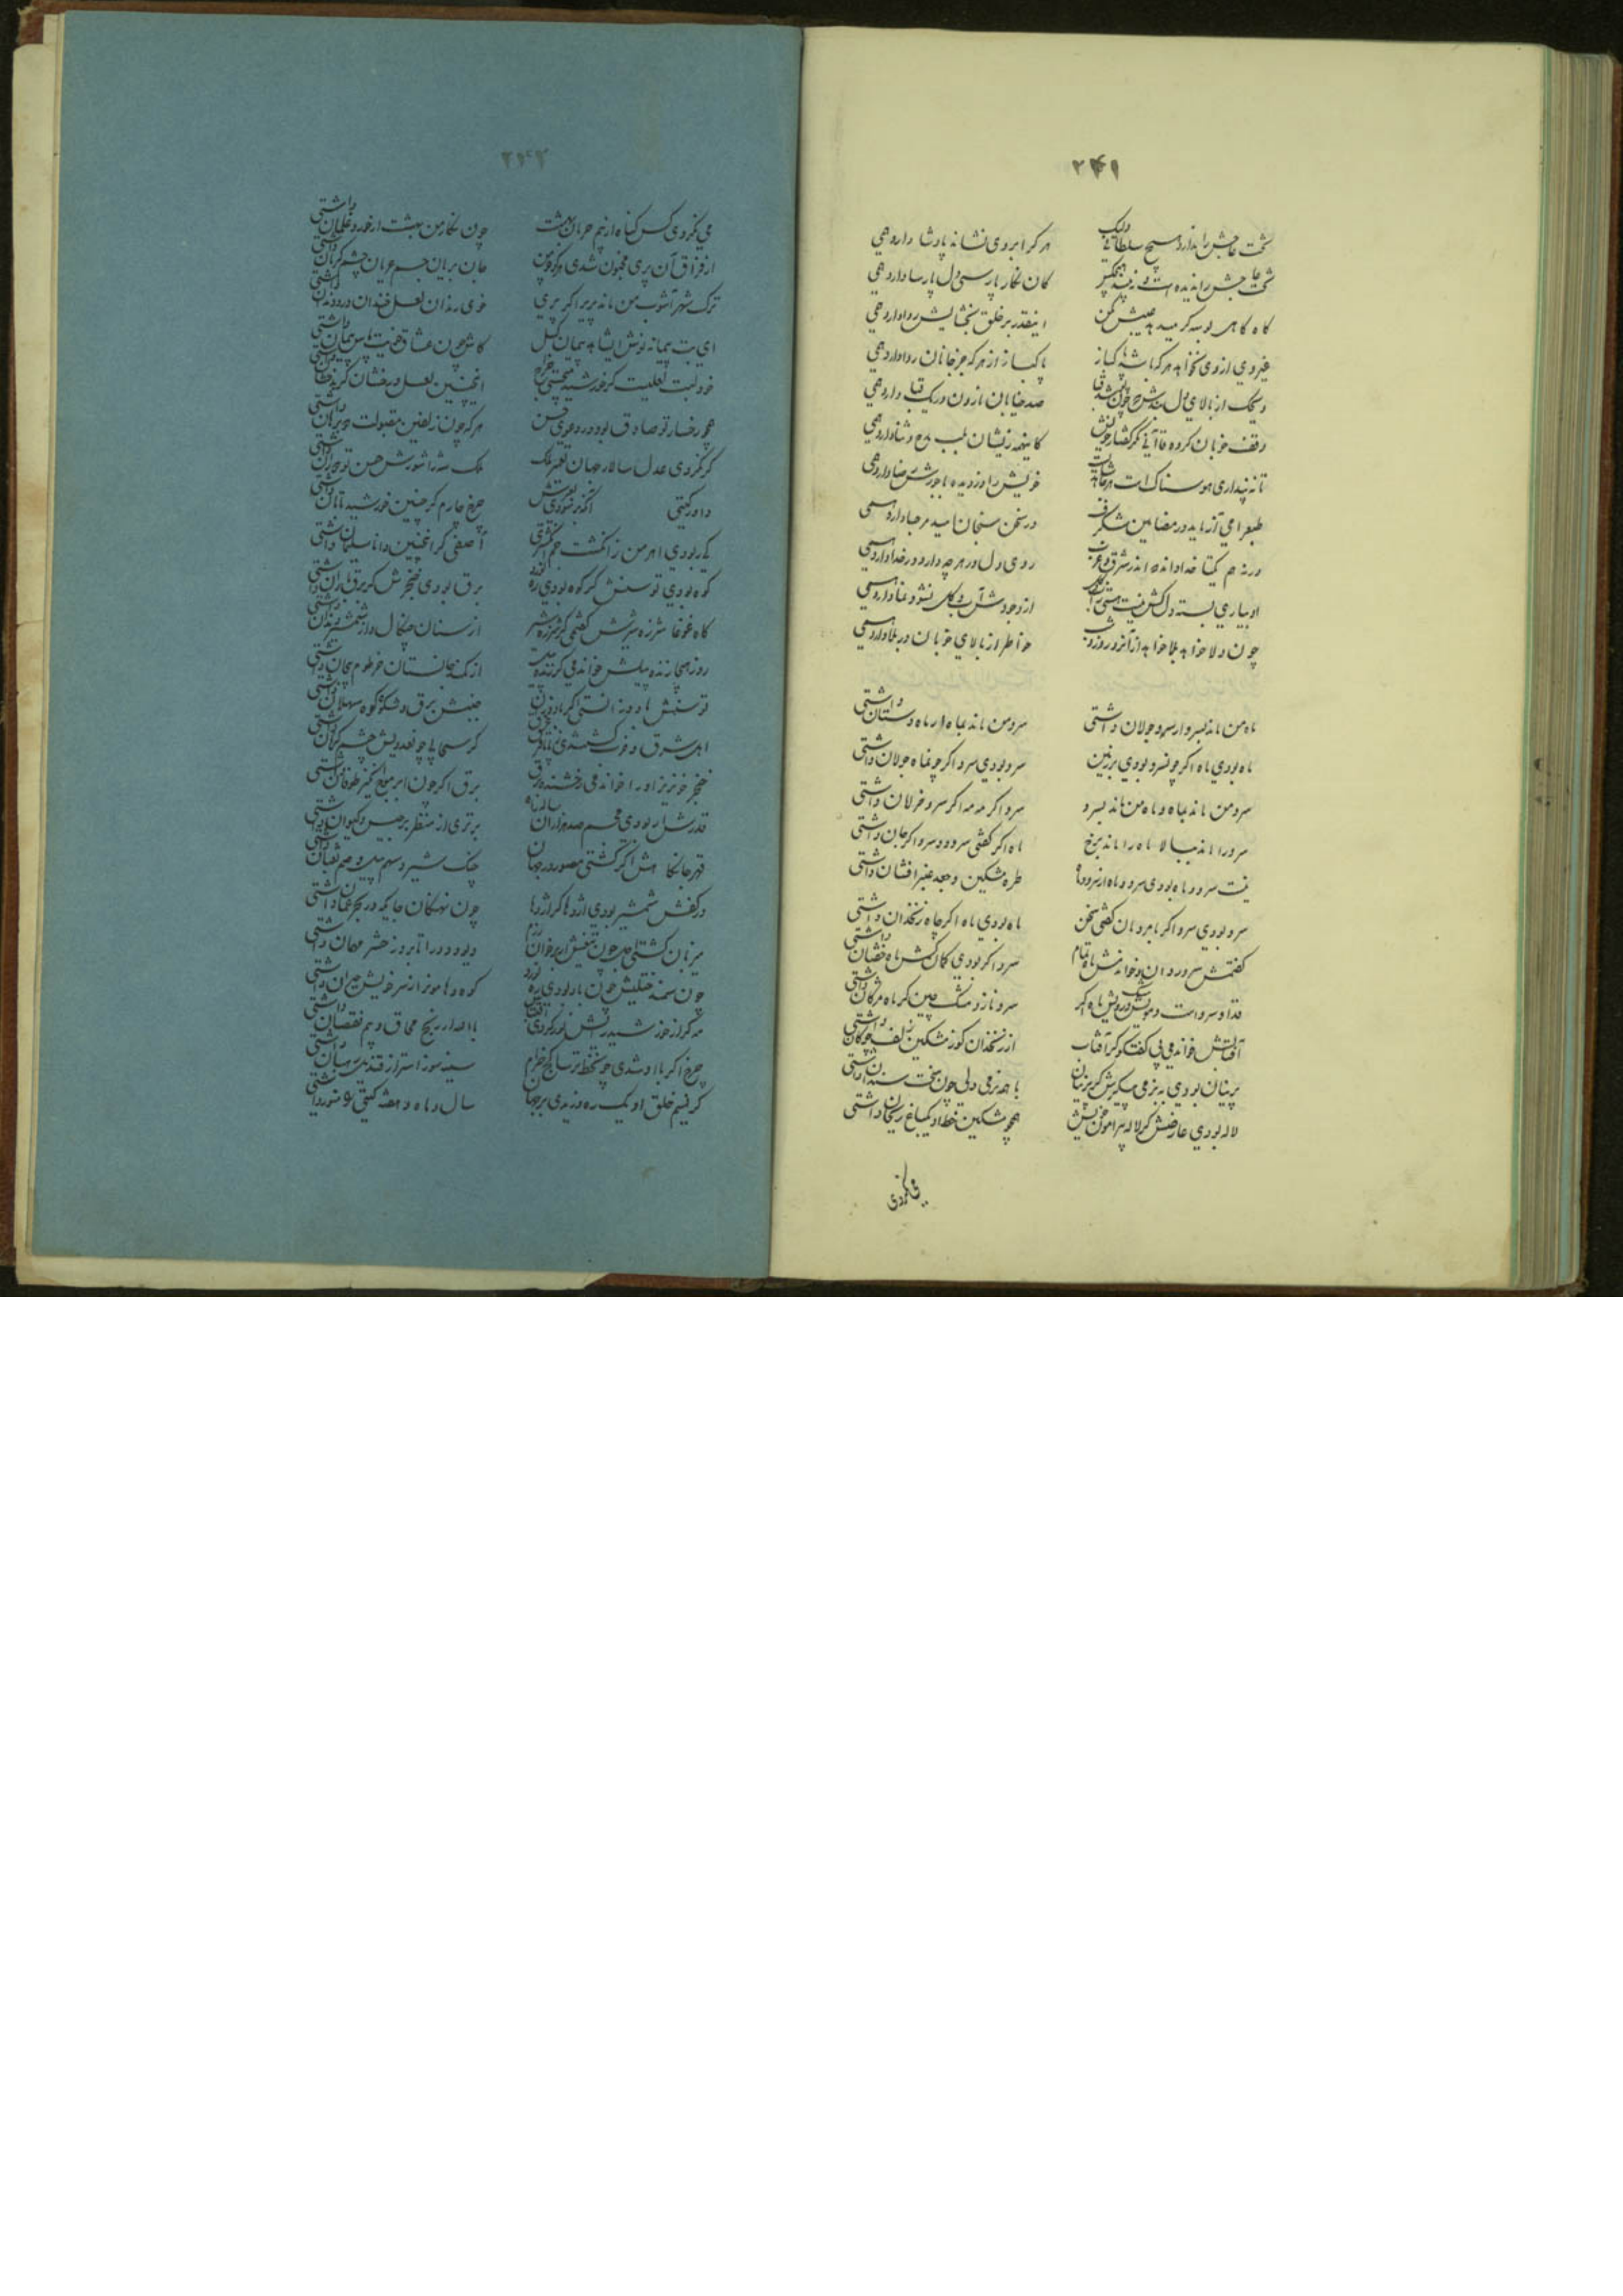 ۲۴۱
تخت عاجش را ندارد هیچ سلطانی ولیک
هر کرا بر وی نشاند پادشا دارد همی
کان نگار پارسی دل پارسا دارد همی
گاه گاهی بوسه گر میدهد عیبش مکن
اینقدر بر خلق بخشایش روا دارد همی
غیر وی از وی نخواهد هر که باشد پاکباز
پاکباز از هر که جز جانان روا دارد همی
صد خیابان نارون در یک قبا دارد همی
وقف خوبان کرده قاآنی مگر گفتار خویش
کاینهمه زیشان بلب مدح و ثنا دارد همی
تا نه پنداری هوسناک است
خویش را دزدیده با خورشید رضا دارد همی
طبع را می آزماید در مضامین شگرف
در سخن سنجان امید مرحبا دارد همی
ورنه هم یکتا خداداند که اندر شرق و غرب
روی دل در هر چه دارد در خدا دارد همی
از وجودش آب و گل نشو و نما دارد همی
چون ولا خواهد بلا خواهد از آنرو روز و شب
خواطر از بالای خوبان در بلا دارد همی
ماه من ماند بسرو ار سرو جولان داشتی
سرو من ماند بماه ار ماه دستان داشتی
ماه بودی ماه اگر چو نسرو بودی بر زمین
سرو بودی سرو اگر چونماه جولان داشتی
سرو من ماند بماه و ماه من ماند بسرو
سرو اگر مه مه اگر سرو خرامان داشتی
سرو را ماند ببالا ماه را ماند برخ
ماه اگر گفتی سرود و سرو اگر جان داشتی
نیست سرو و ماه بودی سرو و ماه ار سرو و ماه
طره مشکین و جعد عنبر افشان داشتی
سرو بودی سرو اگر با مردمان گفتی سخن
ماه بودی ماه اگر چاه زنخدان داشتی
گفتمش سرو روان و خواندمش ماه تمام
سرو اگر بودی کمان کش ماه خفتان داشتی
قد او سرو است و مویش مشک و رویش ماه اگر
سرو ناز و مشک چین گر ماه مژگان داشتی
آفتابش خواندمی بی گفتگو گر آفتاب
از زنخدان گوی ز مشکین زلف چوگان داشتی
پرنیان بودی به نرمی پیکرش گر پرنیان
با همه نرمی دلی چون سخت سندان داشتی
لاله بودی عارضش گر لاله پیرامون خویش
همچو مشکین خط او یکباغ ریحان داشتی
می نکردی
۲۴۲
می نکردی کس گناه از بیم حرمان بهشت
چون نگار من بهشت ار حور و غلمان داشتی
از فراق آن پری مجنون شدی هر کو چو من
جان بریان جسم عریان چشم گریان داشتی
ترک شهر آشوب من ماند بپریر اگر پری
خوی رندان لعل خندان در و دندان داشتی
ای بت پیمانه نوش ایشاهد پیمان گسل
کاش چون عشاق خویشت پاس پیمان داشتی
خود لبت لعلیست کز خورشید میجستی خراج
اینچنین لعل درخشان گر بدخشان داشتی
همچو رخسار تو صادق بود در دعوی حسن
هر که چون زلفین مفتولت دو برهان داشتی
گر نکردی عدل سالار جهان تعمیر ملک
ملک شه را شورش حسن تو ویران داشتی
داور گیتی
چرخ چارم گر چنین خورشید تابان داشتی
کی ربودی اهرمن ز انگشت جم انگشتری
آصفی گر اینچنین دانا سلیمان داشتی
کوه بودی توسنش گر کوه بودی ره نورد
برق بودی خنجرش گر برق باران داشتی
گاه غوغا شرزه شیرش گفتمی گر شرزه شیر
از سنان چنگال و از شمشیر دندان داشتی
روز هیجا زنده پیلش خواندمی گر زنده پیل
از کمند جانستان خرطوم پیچان داشتی
توسنش باد وزانستی اگر باد وزان
جنبش برق و شکوه کوه سهلان داشتی
خنجر خونریز او را خواندمی رخشنده برق
برق اگر چون ابر موج انگیز طوفان داشتی
قدرش ار بودی مجسم صد هزاران ساله راه
برتری از منظر برجیس و کیوان داشتی
قهر جانکاهش اگر گشتی مصور در جهان
چنگ شیر و سهم پیل و سم ثعبان داشتی
در کفش شمشیر بودی اژدها گر اژدها
چون نهنگان جایگه در بحر عمان داشتی
میزبان گشتی اجل چون تیغش اندر خوان رزم
دیو و دد را تا بروز حشر مهمان داشتی
چون سمند ختلیش چون باد بودی ره نورد
کوه و هامون از سر خویش حیران داشتی
مه گر از خورشید رایش نور کردی اقتباس
با الله ار رنج محاق و بیم نقصان داشتی
گر نسیم خلق او یک ره وزیدی بر جهان